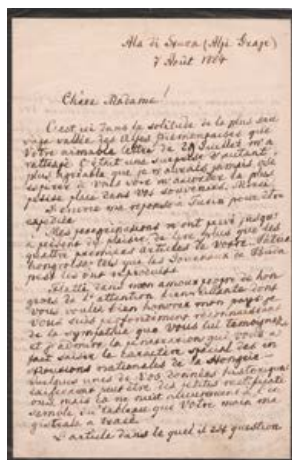 Ala di Stura (Alpi Graje)
7 Août 1884
Chère Madame!
C'est ici dans la solitude de la plus sau-
vage vallée des Alpes piémontaises que
Votre aimable lettre de 29 Juillet m'a
rattrapé. C'était une surprise d'autant
plus agréable que je n'aurais jamais osé
espérer de vous voir m'accorder la plus
petite place dans vos souvenirs. Merci
J'envoie ma réponse à Turin pour être
expédiée.
Mes peregrinations m'ont privé jusqu'
à présent du plaisir de lire plus que les
quattre premiers articles de Votre
hongroise tels que les Journaux de Buda
pest les ont reproduits.
Flatté dans mon amour propre de hon
grois de l'attention bienveillante dont
vous voulez bien honorer mon pays je
vous suis profondément reconnaissant
de la sympathie que Vous lui temoignez
et j'admire la pénétration que vous a
fait saisir le caractère spécial des
nationales de la Hongrie
quelques unes de Vos données historiques
peut être des petites rectificati
ons mais ça ne nuit aucunement à l'en
semble du tableau que Votre main ma
gistrale a tracé.
L'article dans le quel il est question